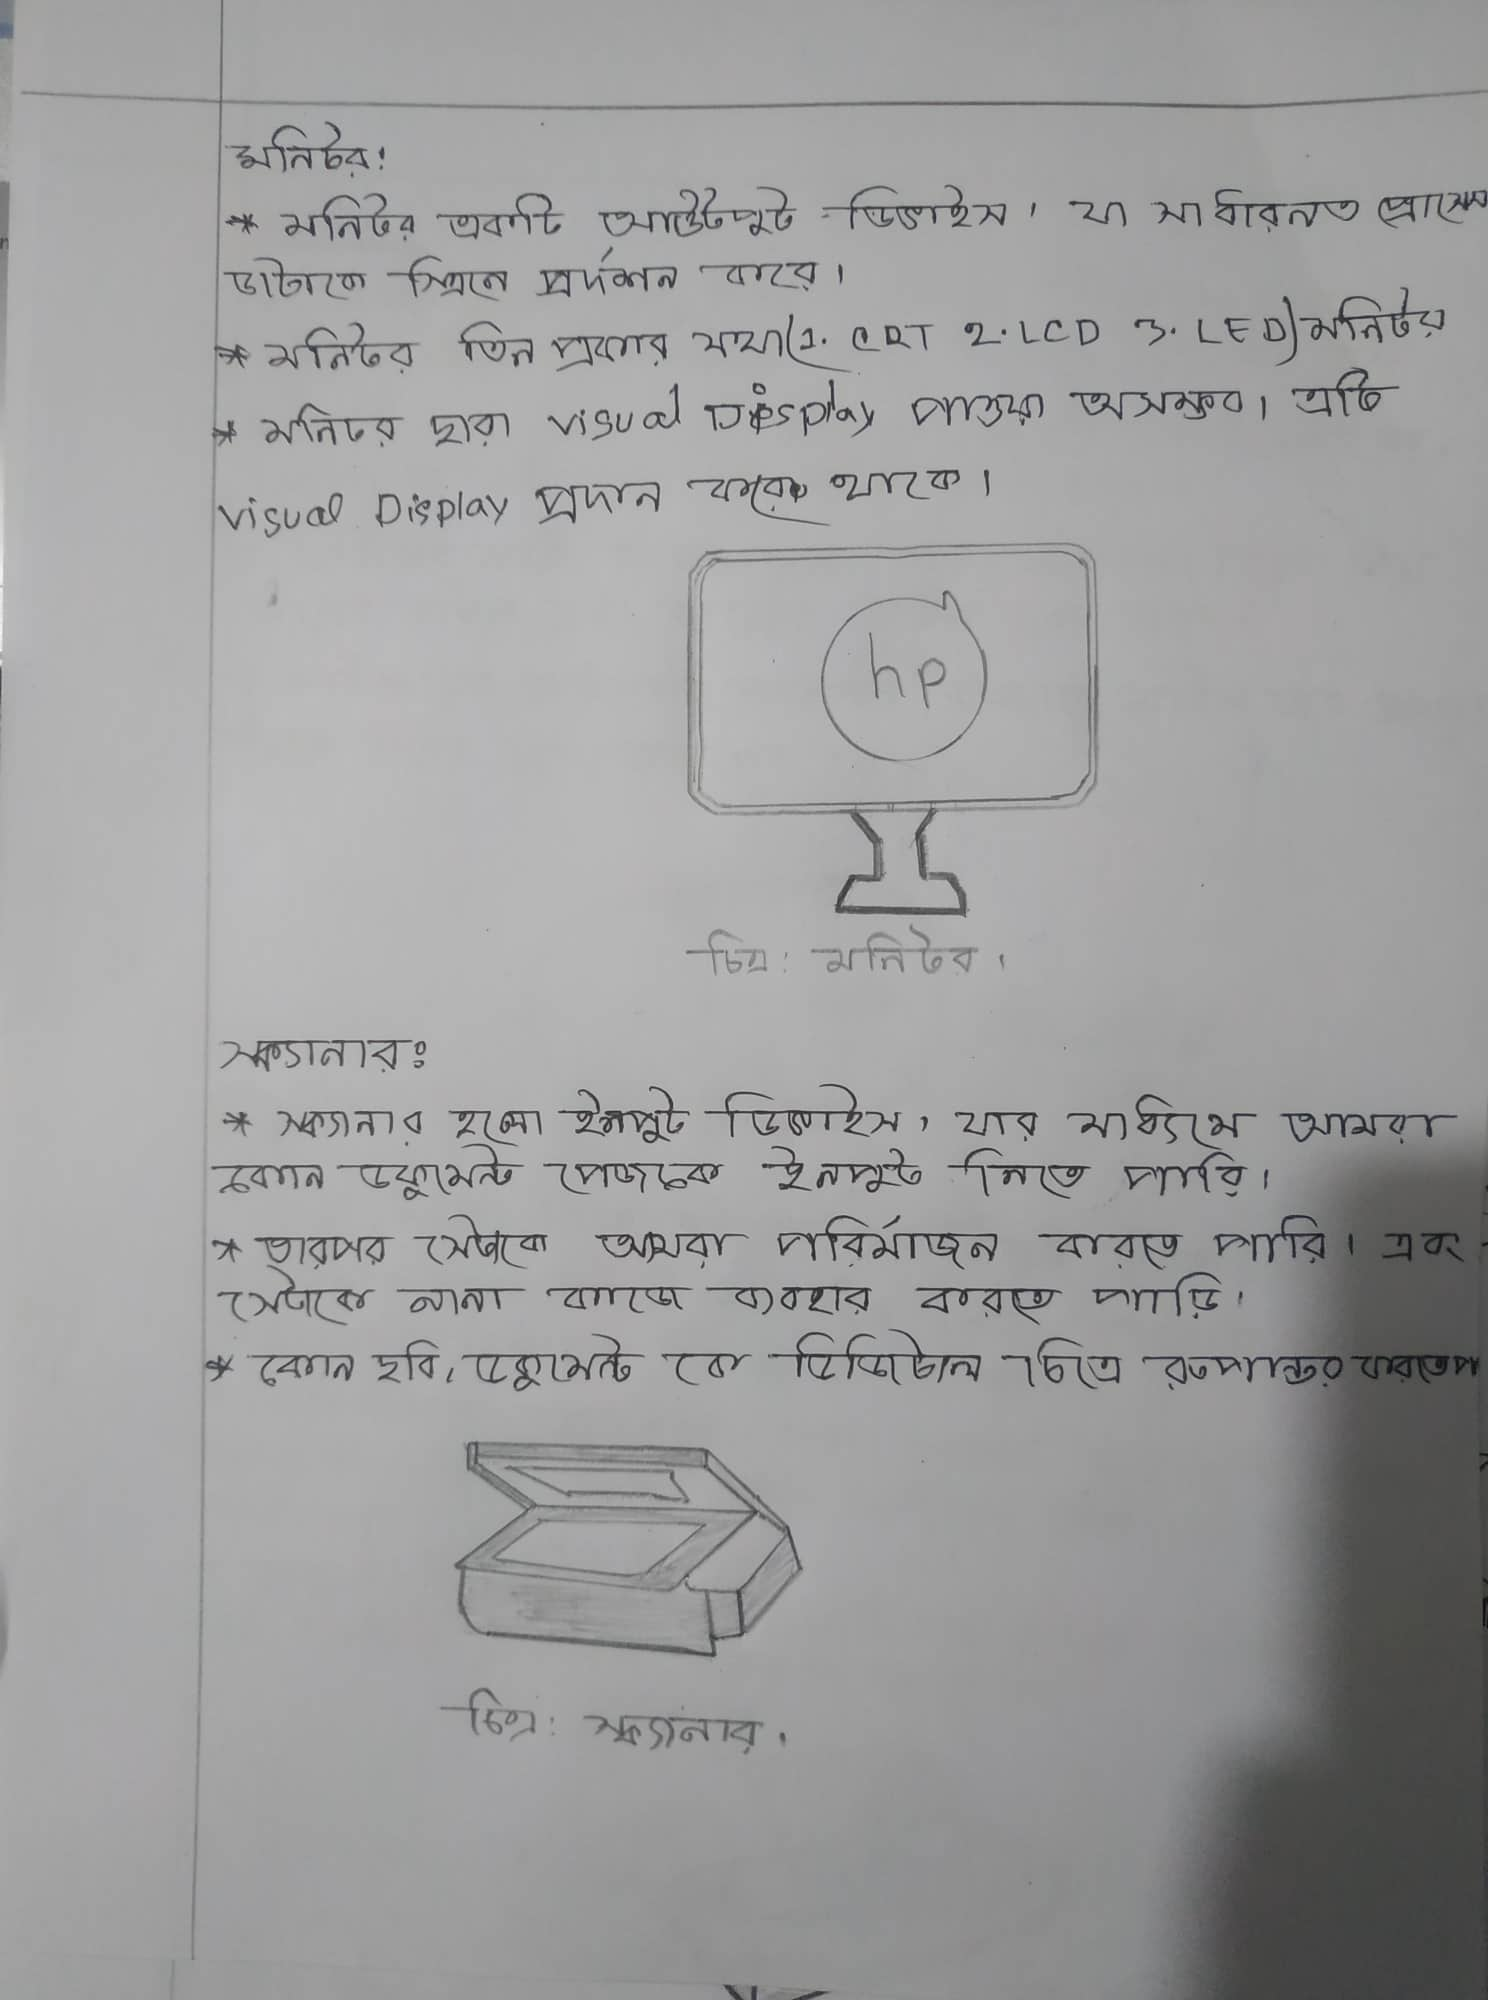 মনিটর:
* মনিটর একটি আউটপুট ডিভাইস, যা সাধারনত প্রোসেস
ডাটাকে স্ক্রিনে প্রর্দশন করে।
* মনিটর তিন প্রকার যথা(1. CRT 2. LCD 3. LED)মনিটর
* মনিটর ছারা visual Display পাওয়া অসম্ভব। এটি
visual Display প্রদান করে থাকে।
hp
চিত্র: মনিটর।
স্ক্যানার:
* স্ক্যানার হলো ইনপুট ডিভাইস, যার মাধ্যিমে আমরা
কোন ডকুমেন্ট পেজকে ইনপুট নিতে পারি।
* তারপর সেটাকে আমরা পরির্মাজন করতে পারি। এবং
সেটাকে নানা কাজে ব্যবহার করতে পাড়ি।
* কোন ছবি, ডকুমেন্ট কে ডিজিটাল চিত্রে রূপান্তর করতে
চিত্র: স্ক্যানার।